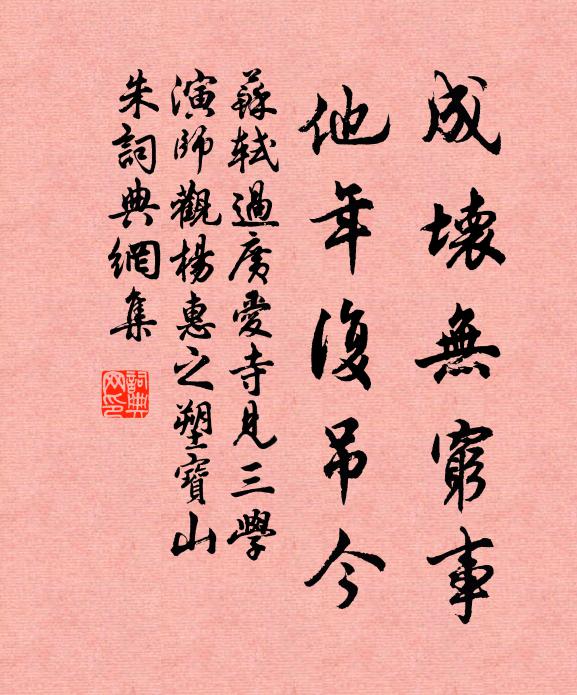 成壞無窮事
他年復吊今
蘇軾過廣愛寺見三學
演師觀楊惠之塑寶山
朱詞典網集
詞典网印